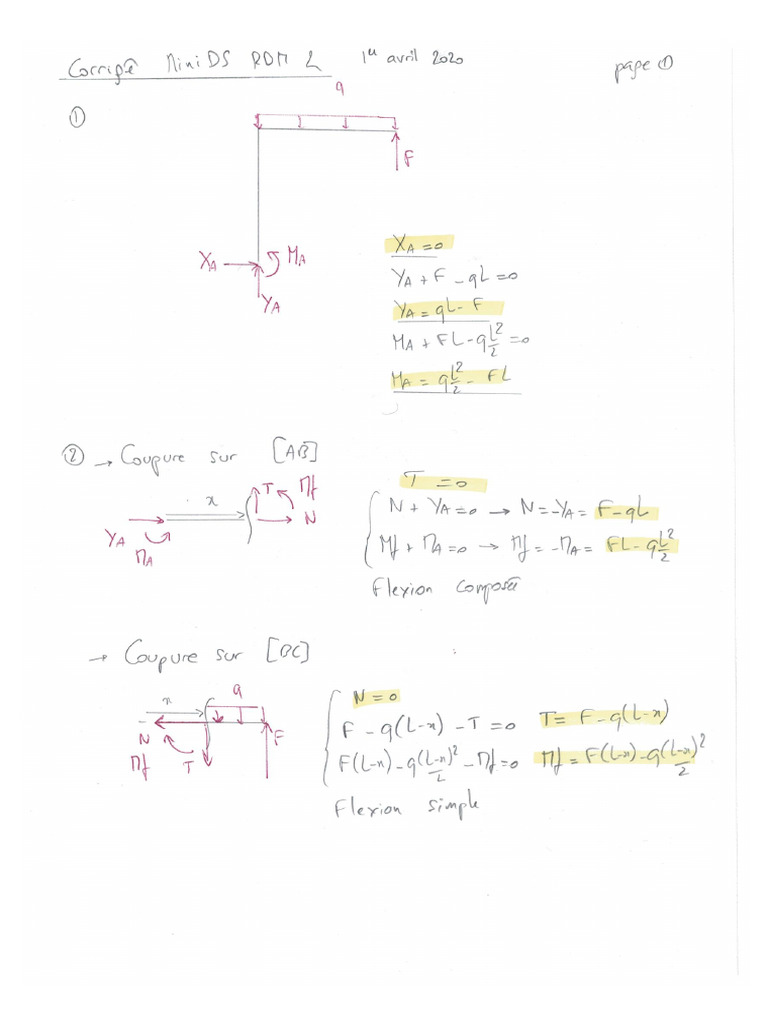 Corrigé Mini DS RDM 2 1er avril 2020 page ①
①
q
F
X_A M_A
Y_A
X_A = 0
Y_A + F - qL = 0
Y_A = qL - F
M_A + FL - qL²/2 = 0
M_A = qL²/2 - FL
② → Coupure sur [AB]
x T Mf
N
Y_A
M_A
T = 0
N + Y_A = 0 → N = -Y_A = F - qL
Mf + M_A = 0 → Mf = -M_A = FL - qL²/2
Flexion composée
→ Coupure sur [BC]
x q
N F
Mf T
N = 0
F - q(L-x) - T = 0 T = F - q(L-x)
F(L-x) - q(L-x)²/2 - Mf = 0 Mf = F(L-x) - q(L-x)²/2
Flexion simple